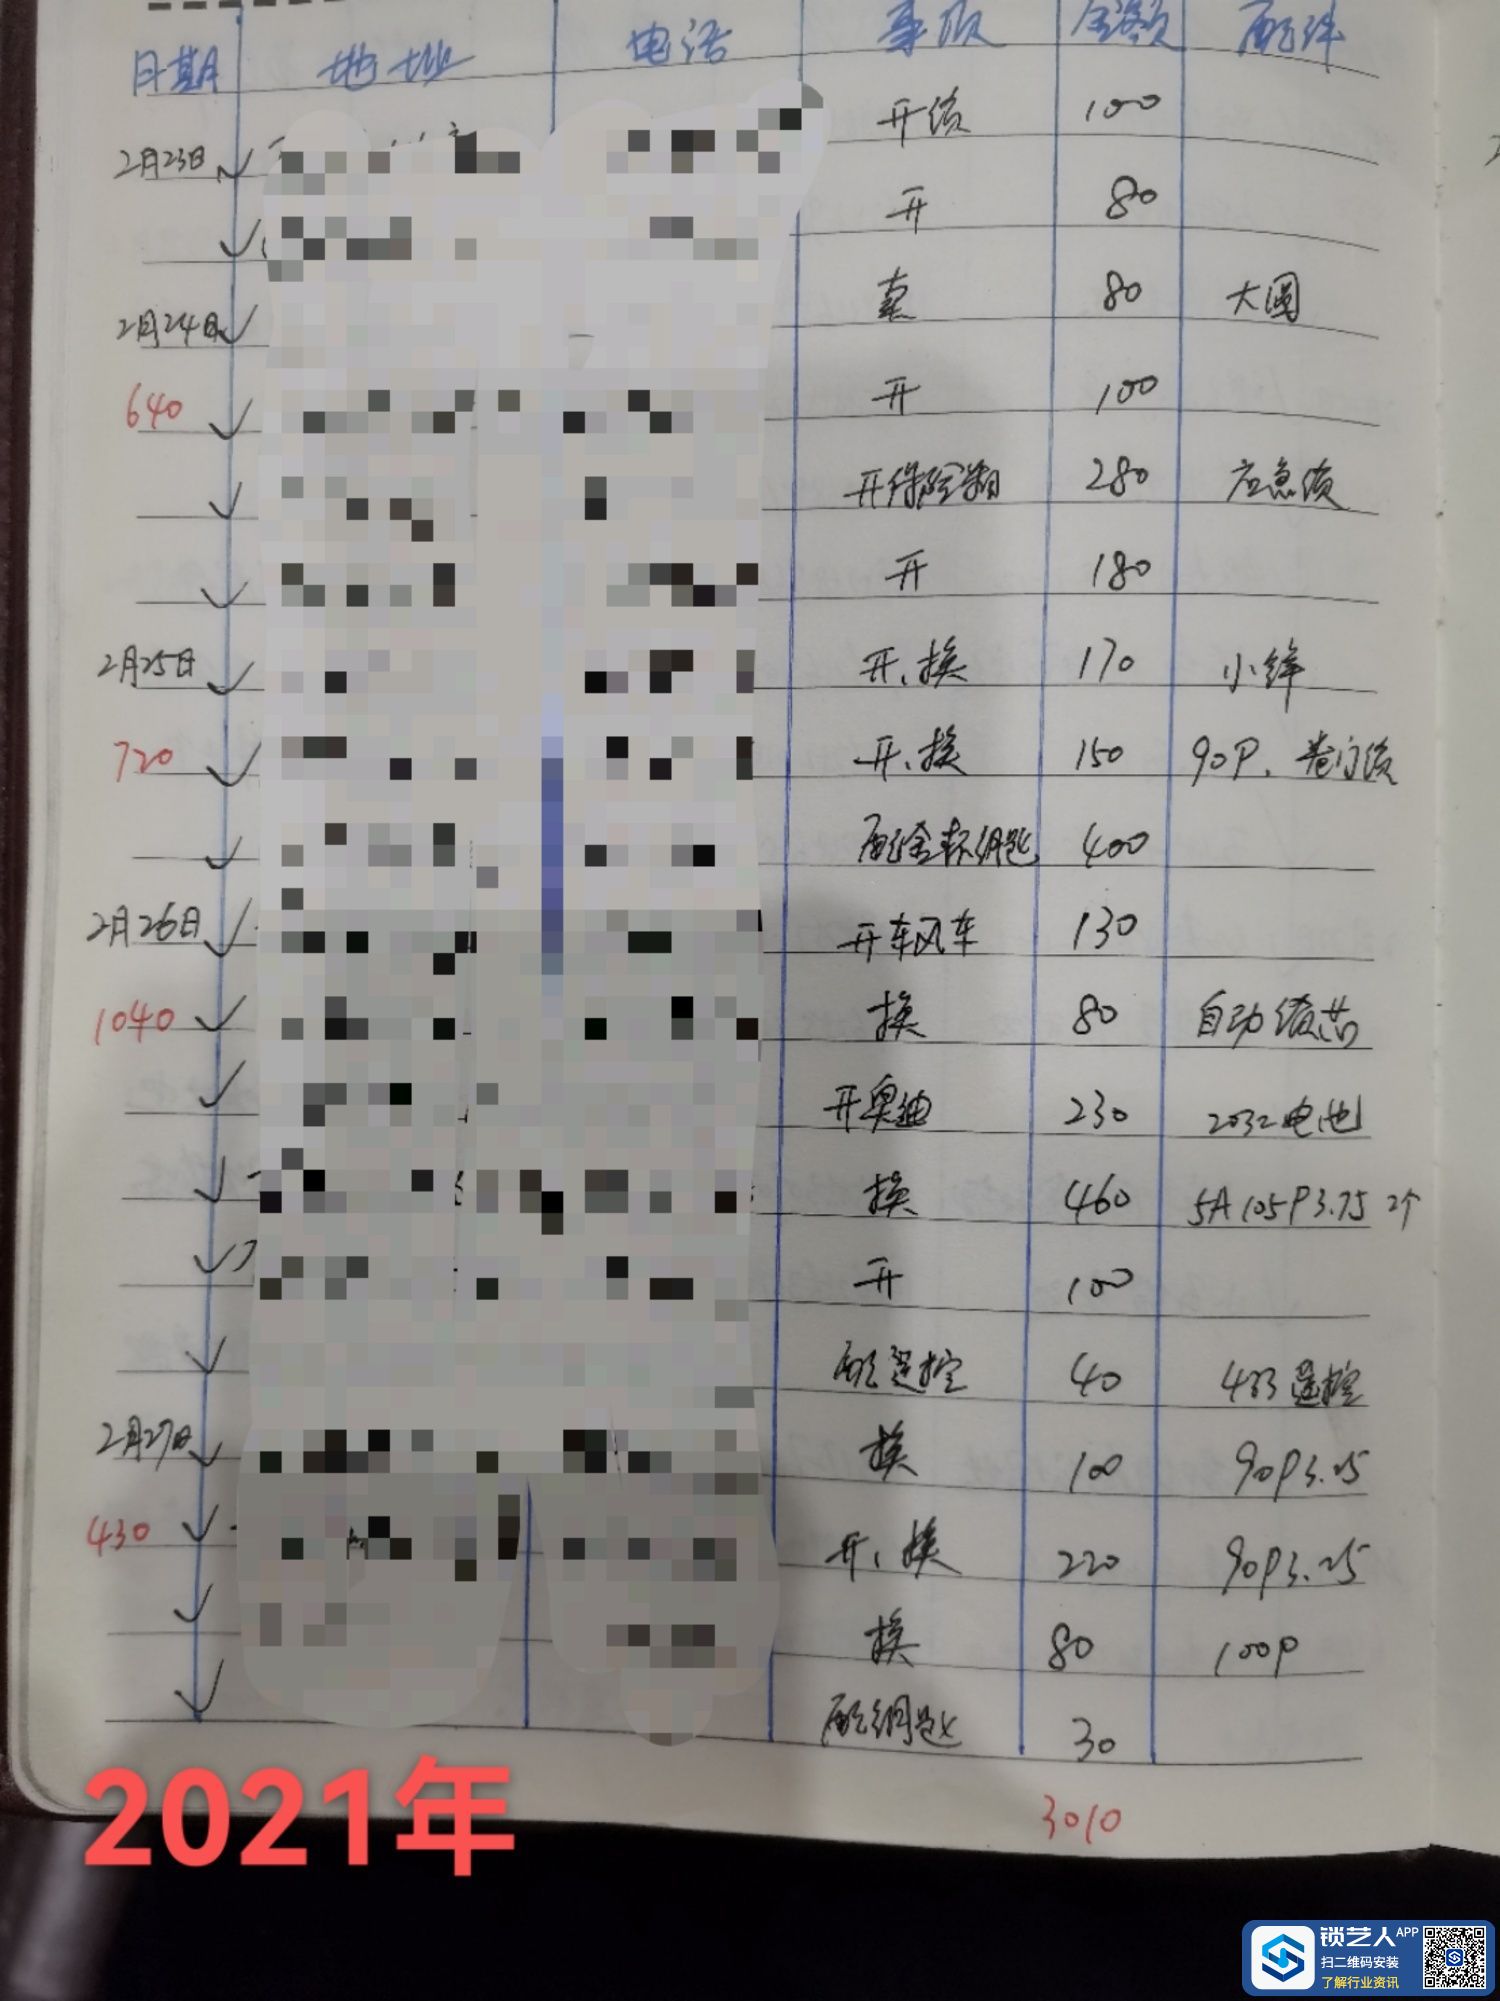 日期 地址 电话 事项 金额 配件
2月23日 开锁 100
开 80
2月24日 卖 80 大圆
640 开 100
开保险箱 280 应急锁
开 180
2月25日 开、换 170 小锌
720 开、换 150 90P、卷门锁
配金杯钥匙 400
2月26日 开车风车 130
1040 换 80 自动锁芯
开奥迪 230 2032电池
换 460 5A 105P3.75 2个
开 100
配遥控 40 433遥控
2月27日 换 100 90P3.25
430 开、换 220 90P3.25
换 80 100P
配钥匙 30
3010
2021年
锁艺人APP
扫二维码安装
了解行业资讯